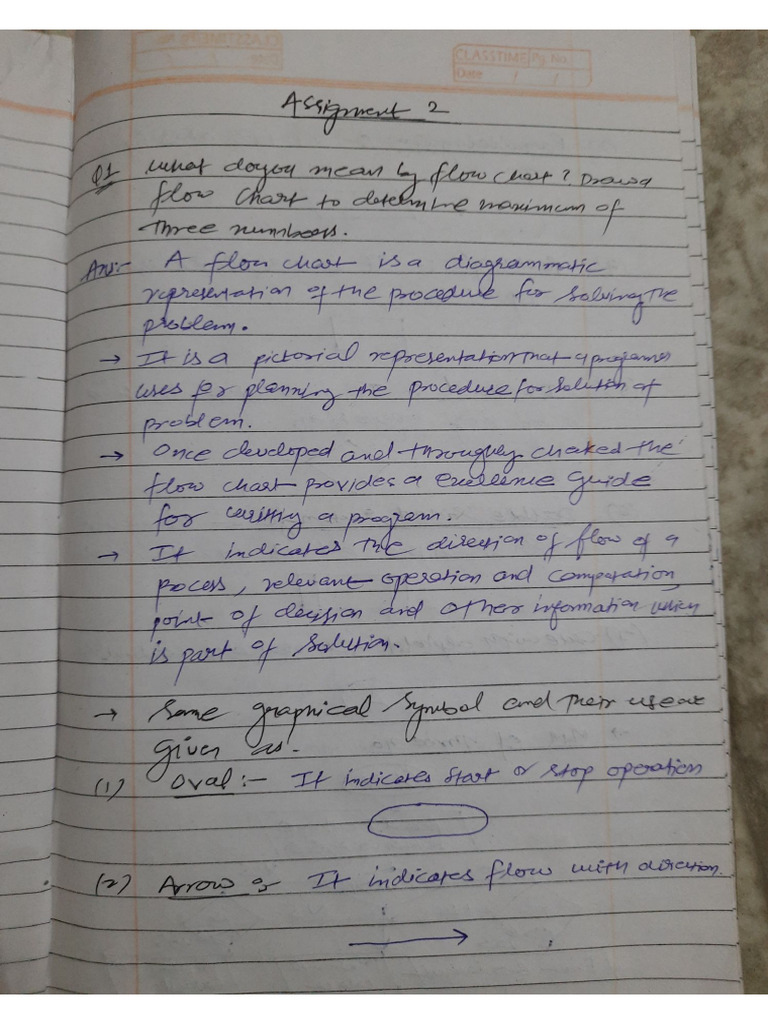 CLASSTIME Pg. No.
Date / /
Assignment 2
Q1 What do you mean by flow chart? Draw a
flow chart to determine maximum of
three numbers.
Ans:- A flow chart is a diagrammatic
representation of the procedure for solving the
problem.
→ It is a pictorial representation that a programer
uses for planning the procedure for solution of
problem.
→ Once developed and throughly cheked the
flow chart provides a excellence guide
for writing a program.
→ It indicates the direction of flow of a
process, relevant operation and computation,
point of decision and other information which
is part of solution.
→ Some graphical symbol and their use are
given as.
(1) Oval :- It indicates start or stop operation
(2) Arrow : It indicates flow with direction.